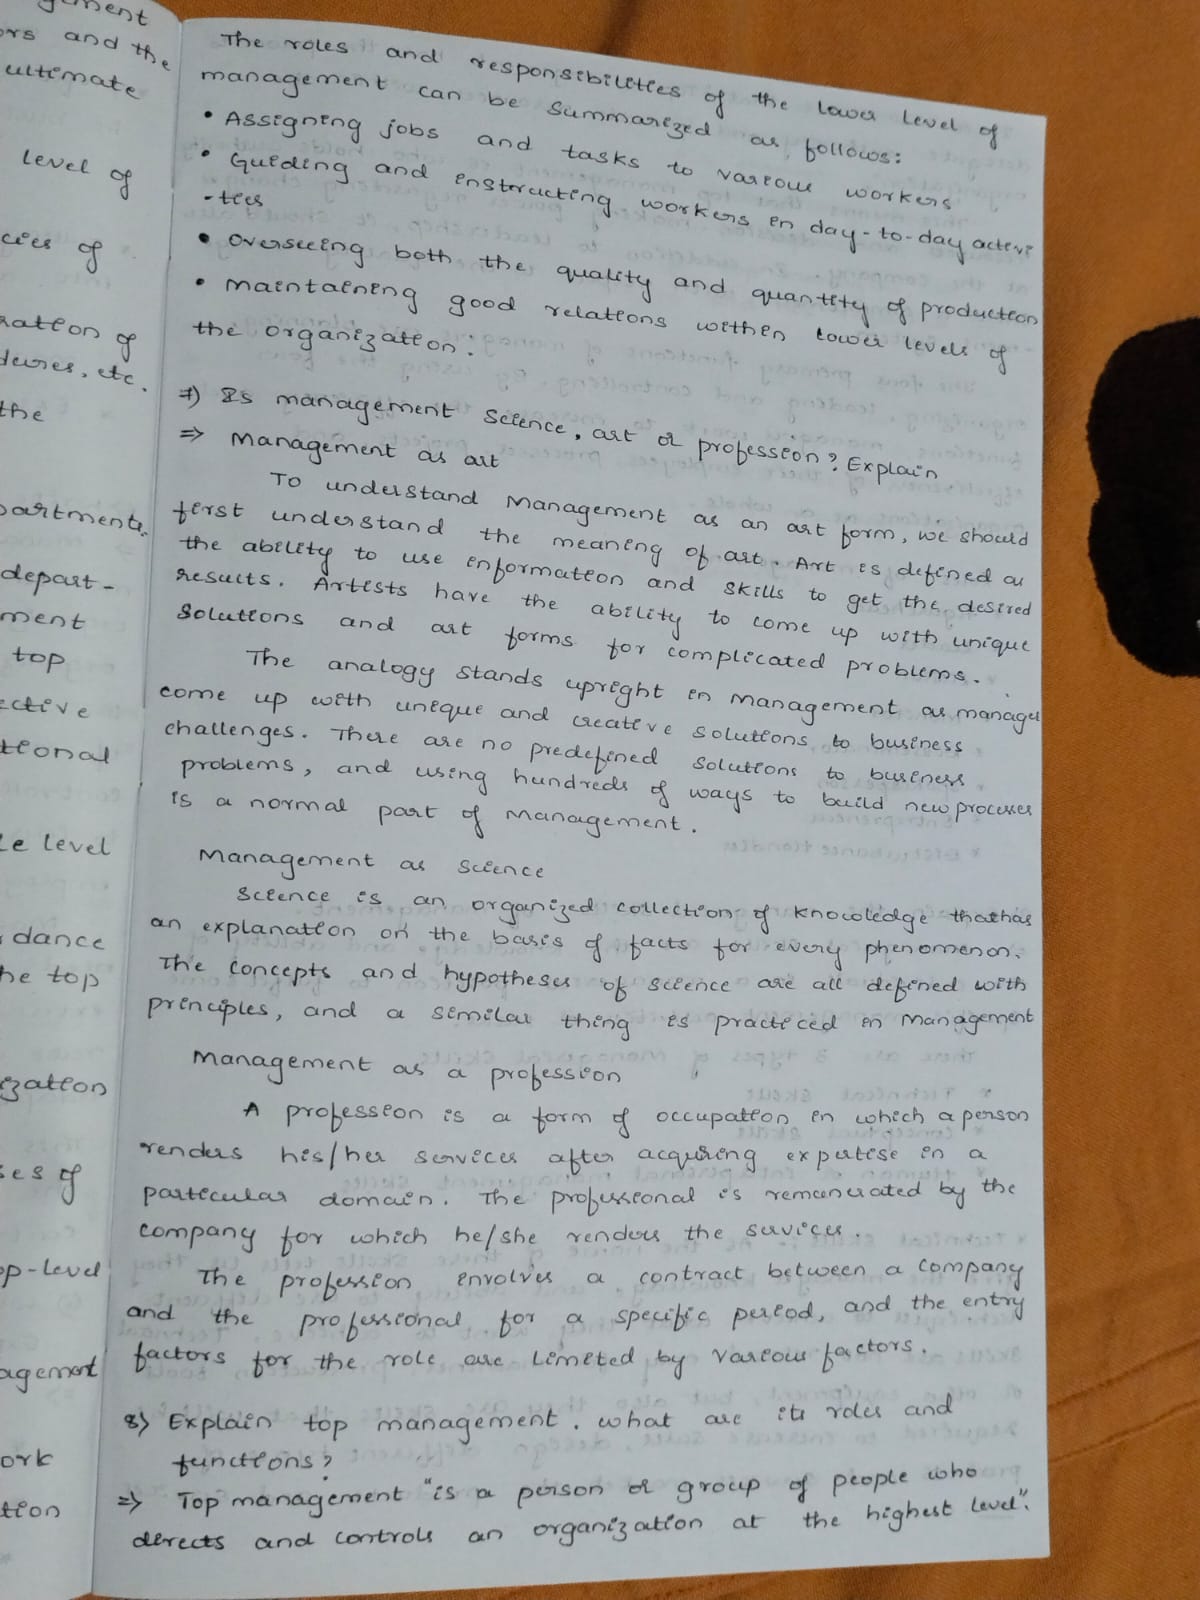 gement
ors and the
ultimate
level of
cies of
ration of
dures, etc.
the
partments.
depart-
ment
top
ective
tional
le level
dance
he top
ization
ses of
op-level
agement
ork
tion
The roles and responsibilities of the lower level of
management can be summarized as follows:
• Assigning jobs and tasks to various workers
• Guiding and instructing workers in day-to-day activi
-ties
• overseeing both the quality and quantity of production
• maintaining good relations within lower levels of
the organization.
7) Is management science, art or profession? Explain
⇒ Management as art
To understand management as an art form, we should
first understand the meaning of art. Art is defined as
the ability to use information and skills to get the desired
results. Artists have the ability to come up with unique
solutions and art forms for complicated problems.
The analogy stands upright in management as manager
come up with unique and creative solutions to business
challenges. There are no predefined solutions to business
problems, and using hundreds of ways to build new processes
is a normal part of management.
Management as science
Science is an organized collection of knowledge that has
an explanation on the basis of facts for every phenomenon.
The concepts and hypotheses of science are all defined with
principles, and a similar thing is practiced in management
Management as a profession
A profession is a form of occupation in which a person
renders his/her services after acquiring expertise in a
particular domain. The professional is remunerated by the
company for which he/she renders the services.
The profession involves a contract between a company
and the professional for a specific period, and the entry
factors for the role are limited by various factors.
8) Explain top management. what are its roles and
functions?
⇒ Top management "is a person or group of people who
directs and controls an organization at the highest level".